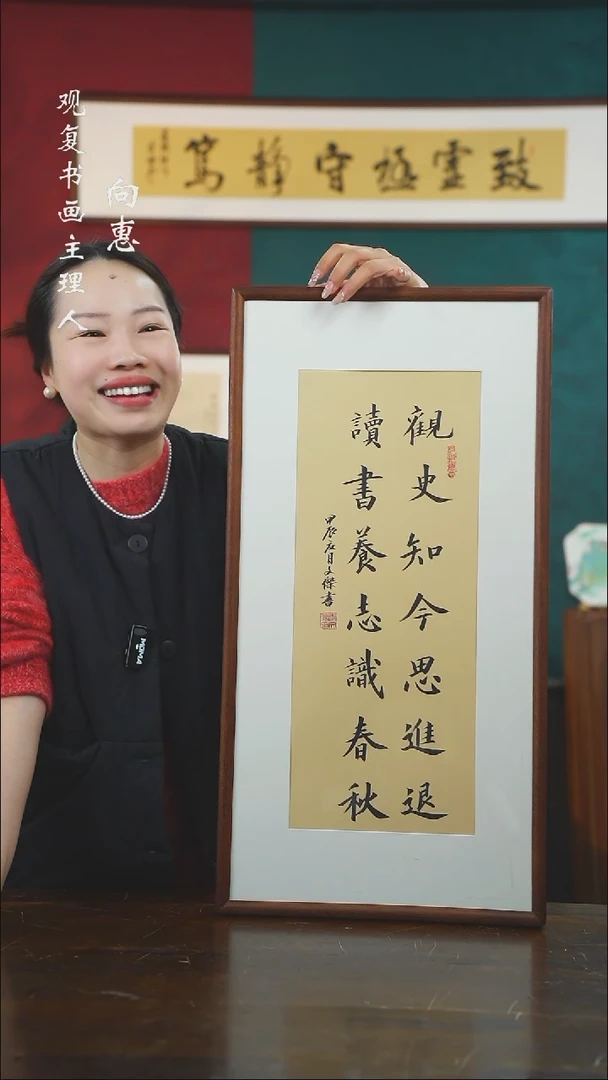 观复书画主理人
向惠
致虚极守静笃
觀史知今思進退
讀書養志識春秋
甲辰
文傑書